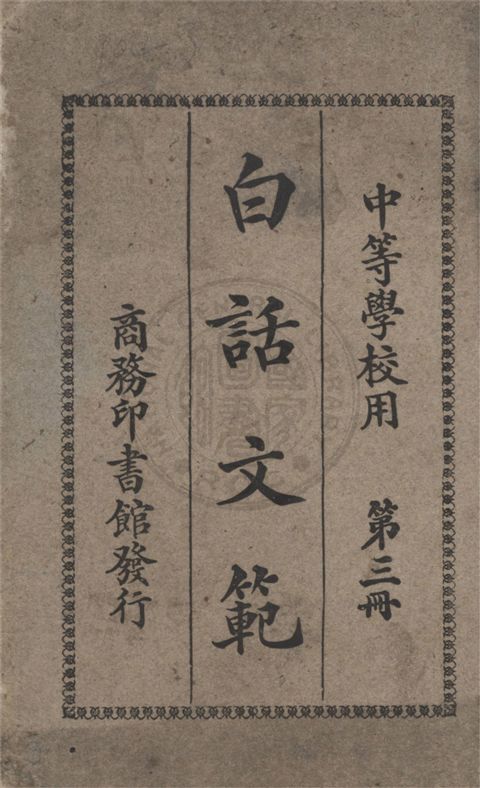 中等學校用　第三冊
白話文範
商務印書館發行